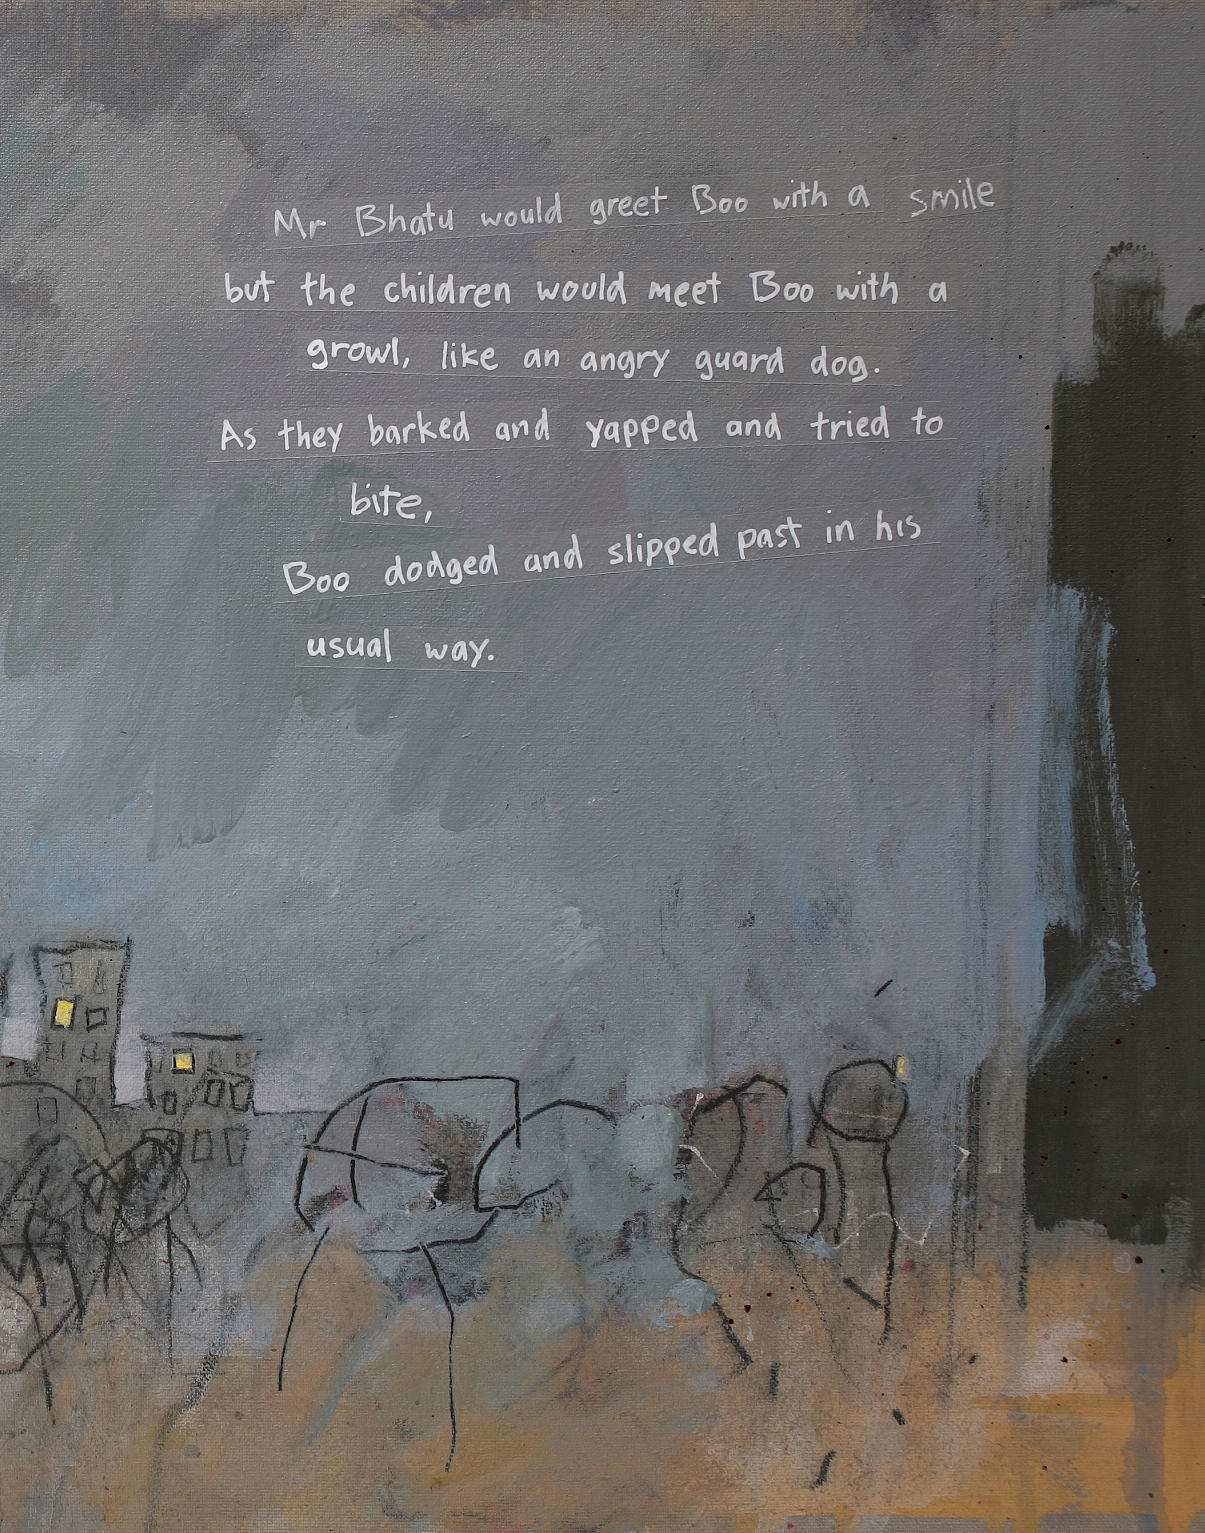 Mr Bhatu would greet Boo with a smile
but the children would meet Boo with a
growl, like an angry guard dog.
As they barked and yapped and tried to
bite,
Boo dodged and slipped past in his
usual way.